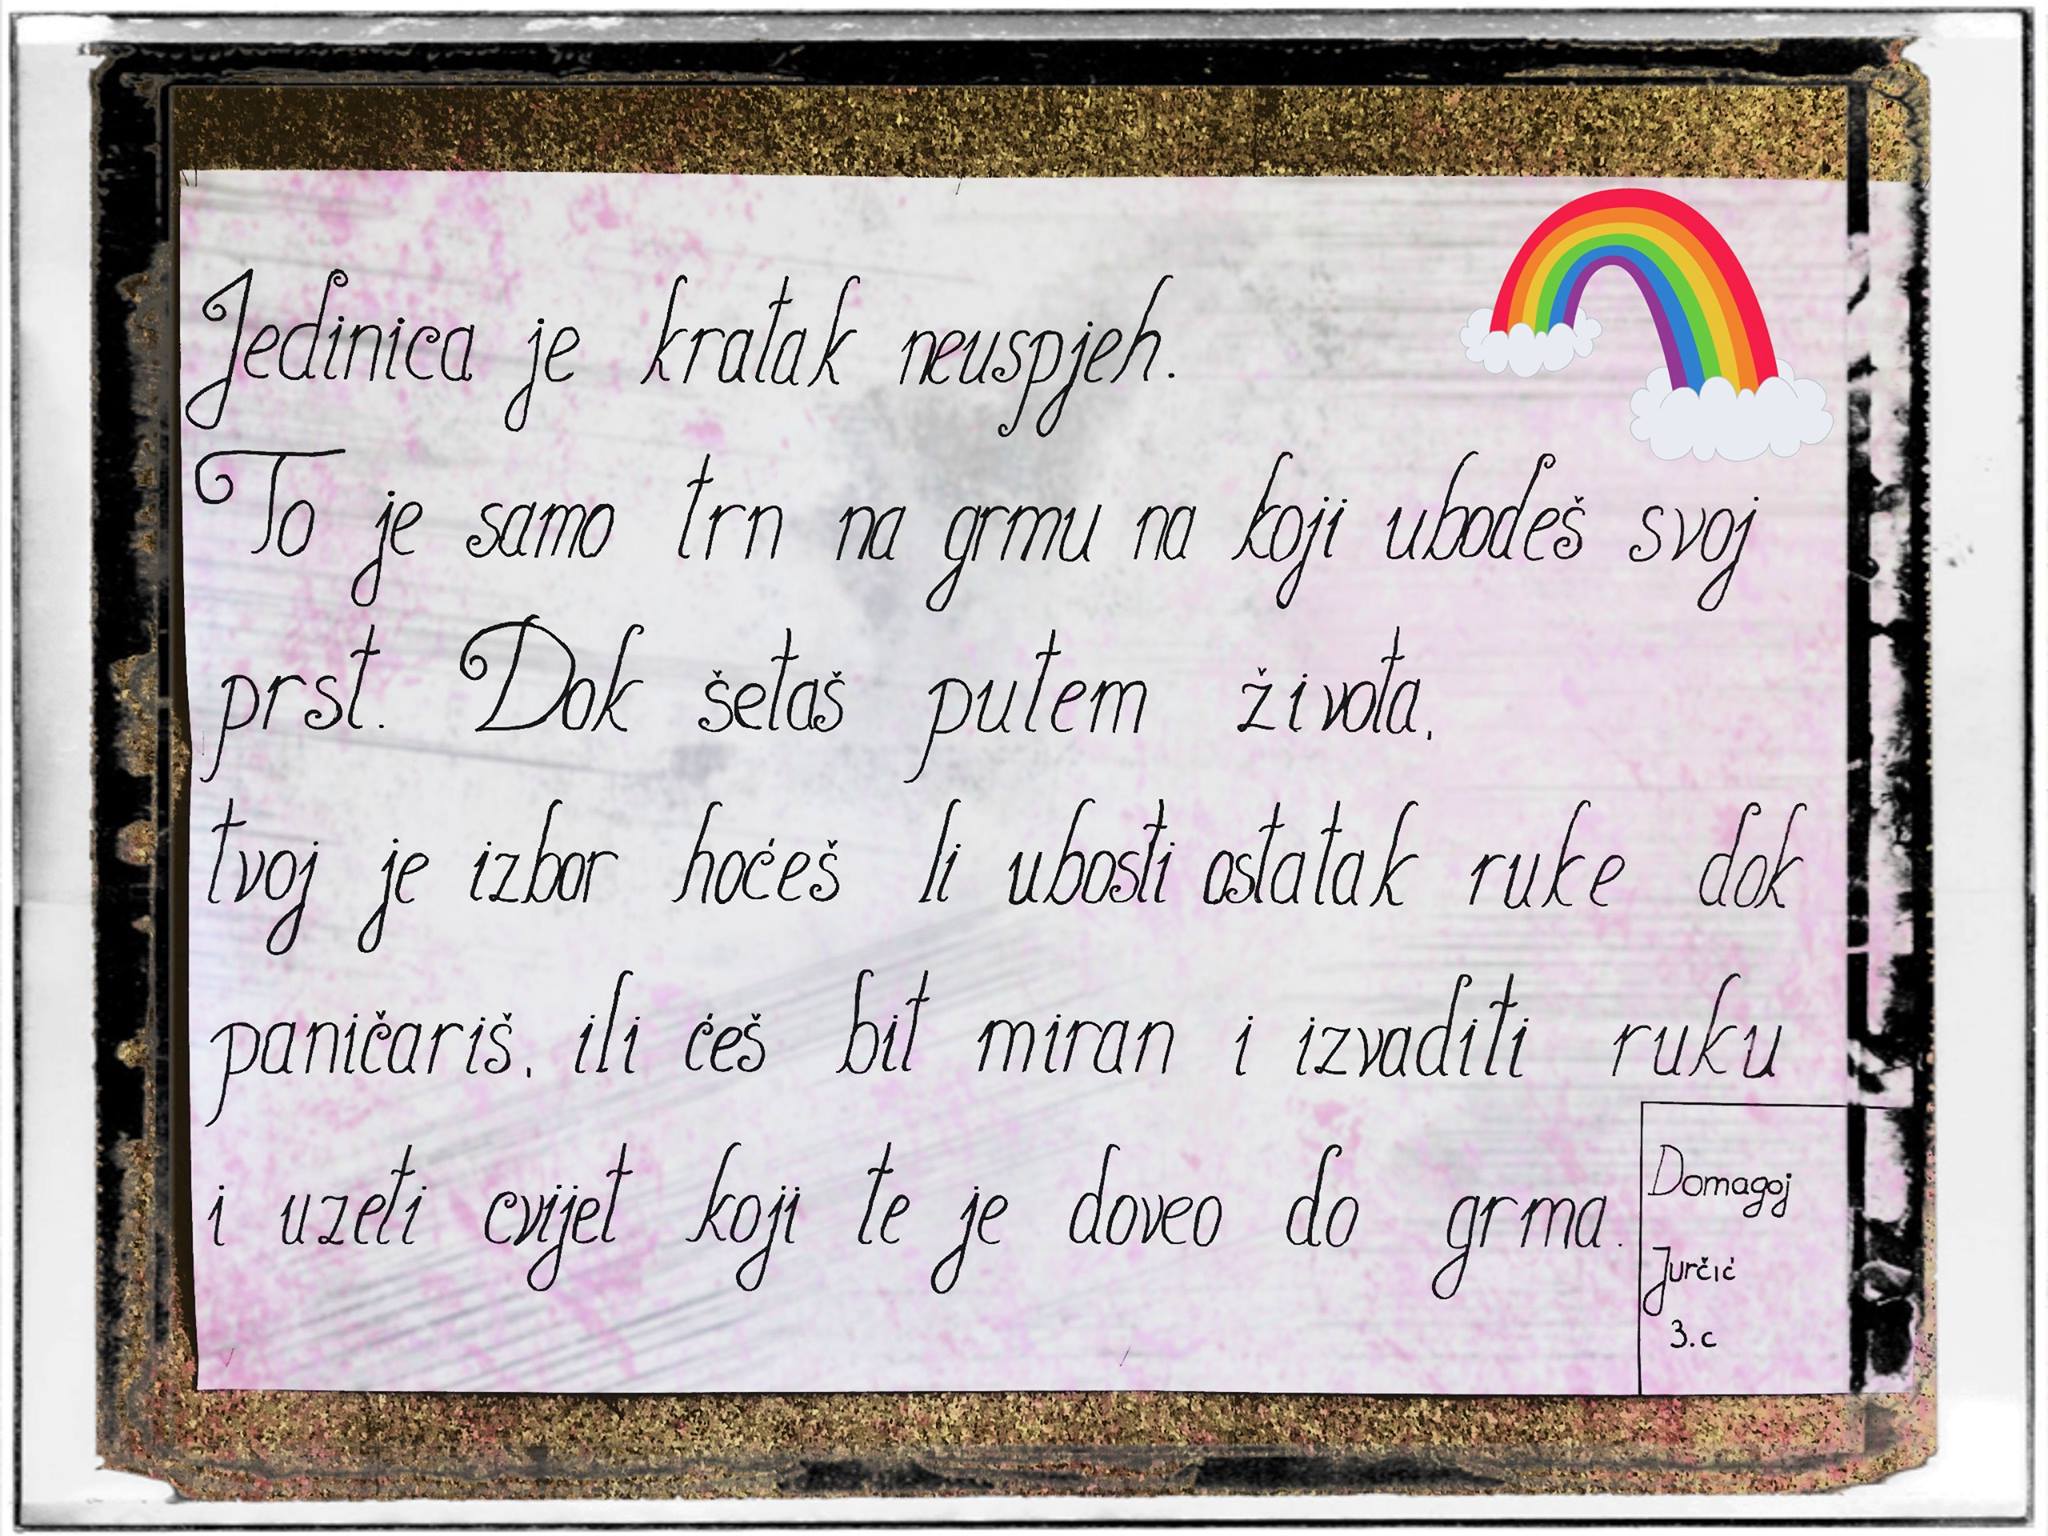 Jedinica je kratak neuspjeh.
To je samo trn na grmu na koji ubodeš svoj
prst. Dok šetaš putem života,
tvoj je izbor hoćeš li ubosti ostatak ruke dok
paničariš, ili ćeš bit miran i izvaditi ruku
i uzeti cvijet koji te je doveo do grma.
Domagoj
Jurčić
3.c